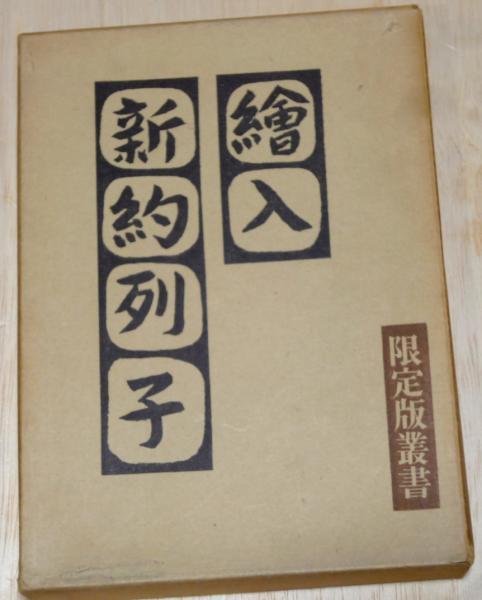 繪入
新約列子
限定版叢書